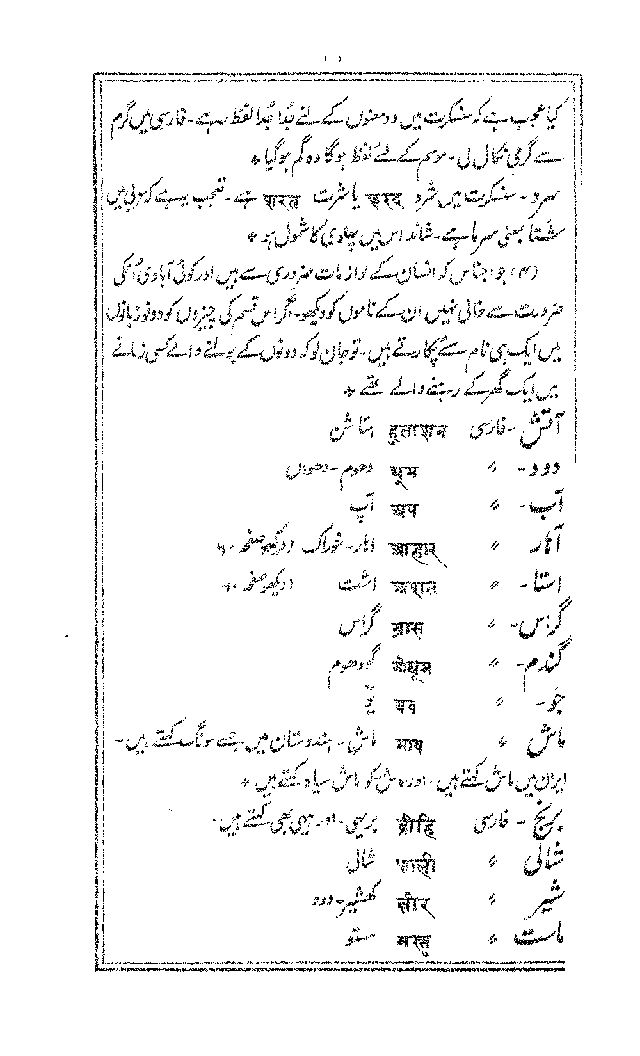 کیا عجب ہے کہ سنسکرت میں دو معنوں کے لئے جُدا جُدا لفظ ہے۔ فارسی میں گرم
سے گرمی نکال لی۔ موسم کے لئے لفظ ہوگا وہ گم ہوگیا *
سرد۔ سنسکرت میں شرد शरद یا شرت शरत ہے۔ تعجب یہ ہے کہ عربی میں
شتا بمعنی سرما ہے۔ شائد اس میں پہلوی کا شمول ہو *
(۴) جو اجناس کہ انسان کے لوازمات ضروری سے ہیں اور کوئی آبادی اُنکی
ضرورت سے خالی نہیں ان کے ناموں کو دیکھو۔ اگر اس قسم کی چیزوں کو دونو زبانوں
میں ایک ہی نام سے پکارتے ہیں۔ تو جان لو کہ دونوں کے بولنے والے کسی زمانے
میں ایک گھر کے رہنے والے تھے *
آتش۔ فارسی हुताशन ہتاشن
دود۔ 〃 धूम دھوم۔ دھواں
آب۔ 〃 अप آپ
آہار 〃 आहार اہار۔ خوراک دیکھو صفحہ
استا۔ 〃 अशत اشت دیکھو صفحہ
گراس۔ 〃 ग्रास گراس
گندم۔ 〃 गोधूम گودھوم
جَو۔ 〃 यव
ماش 〃 माष ماش۔ ہندوستان میں جسے مونگ کہتے ہیں۔
ایران میں ماش کہتے ہیں۔ اور کو ماش سیاہ کہتے ہیں *
برنج۔ فارسی व्रीहि بریہی۔ بھی کہتے ہیں۔
شالی 〃 शाली شالی
شیر 〃 क्षीर کھشیر۔ دودھ
ماست 〃 मस्तु مستو